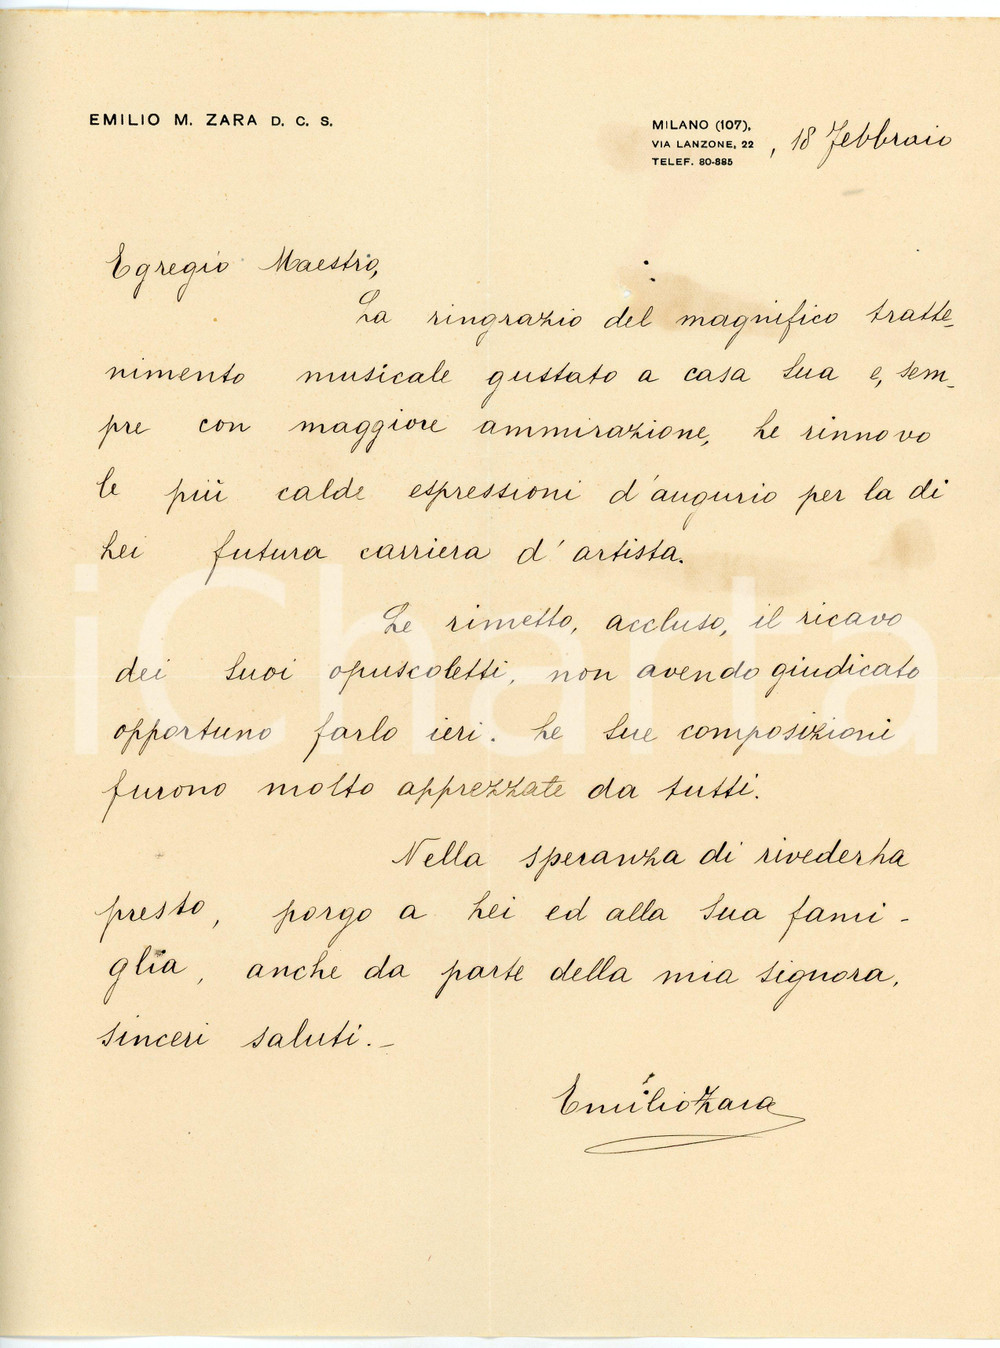 EMILIO M. ZARA D. C. S.
MILANO (107),
VIA LANZONE, 22
TELEF. 80-885
, 18 Febbraio
Egregio Maestro,
La ringrazio del magnifico tratte-
nimento musicale gustato a casa Sua e, sem-
pre con maggiore ammirazione, Le rinnovo
le più calde espressioni d'augurio per la di
Lei futura carriera d'artista.
Le rimetto, accluso, il ricavo
dei Suoi opuscoletti, non avendo giudicato
opportuno farlo ieri. Le Sue composizioni
furono molto apprezzate da tutti.
Nella speranza di rivederLa
presto, porgo a Lei ed alla Sua fami-
glia, anche da parte della mia Signora,
sinceri saluti.-
Emilio Zara
iCharta